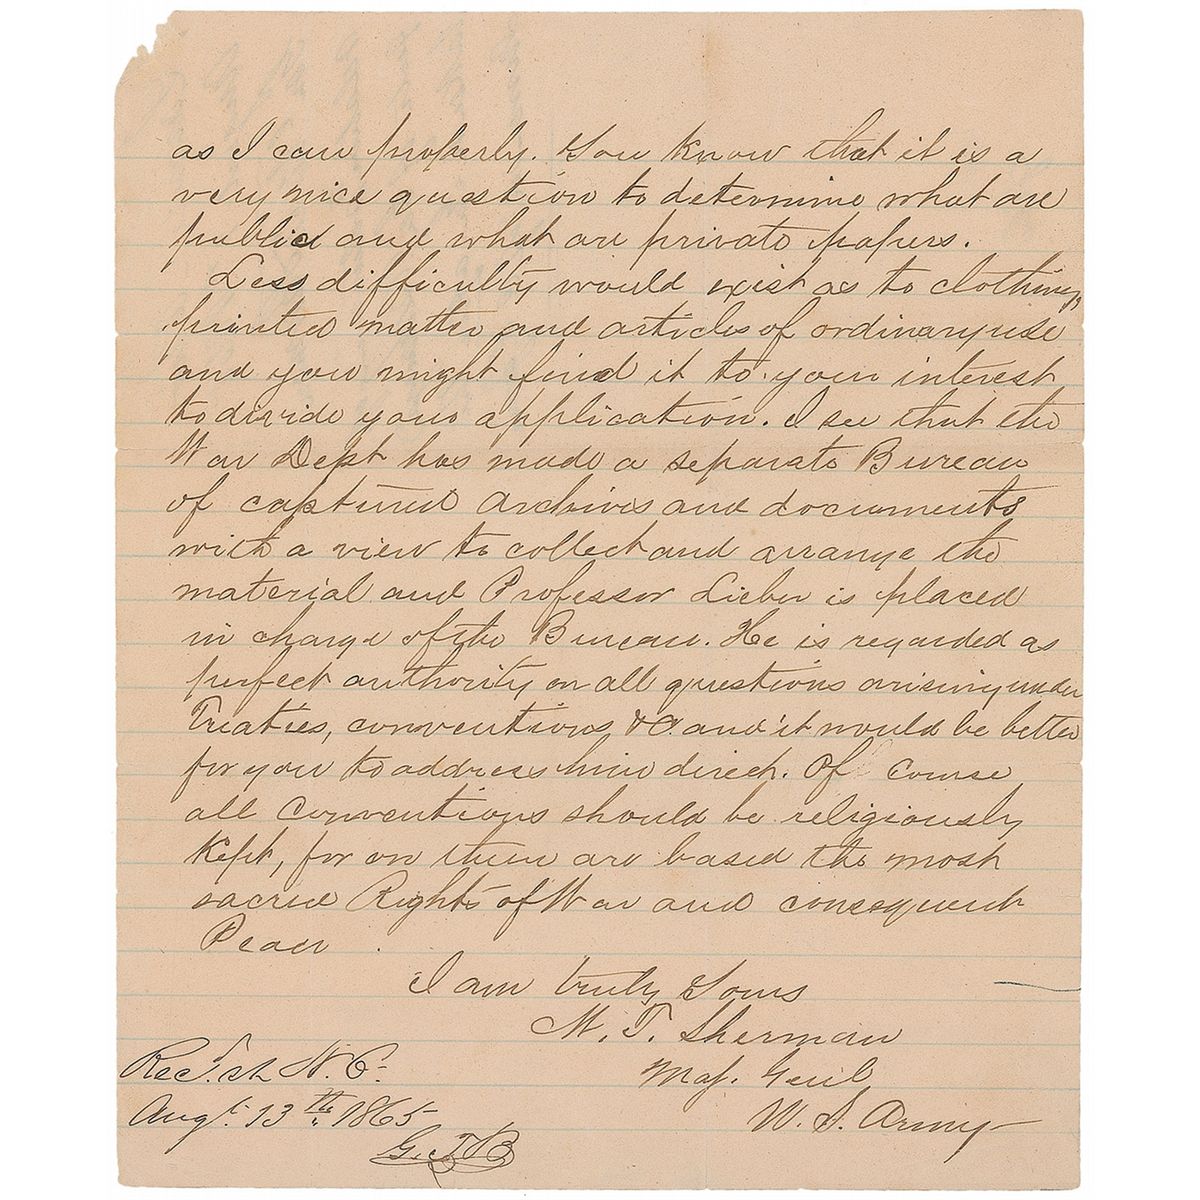 as I can properly. You know that it is a
very nice question to determine what are
public and what are private papers.
Less difficulty would exist as to clothing,
printed matter and articles of ordinary use
and you might find it to your interest
to divide your application. I see that the
War Dept has made a separate Bureau
of captured Archives and documents
with a view to collect and arrange the
material and Professor Lieber is placed
in charge of the Bureau. He is regarded as
perfect authority on all questions arising under
Treaties, conventions &c and it would be better
for you to address him direct. Of Course
all Conventions should be religiously
Kept, for on them are based the most
sacred Rights of War and consequent
Peace.
I am truly Yours
W. T. Sherman
Maj. Genl
U. S. Army
N. C.
Augt. 13th 1865
G. T. B